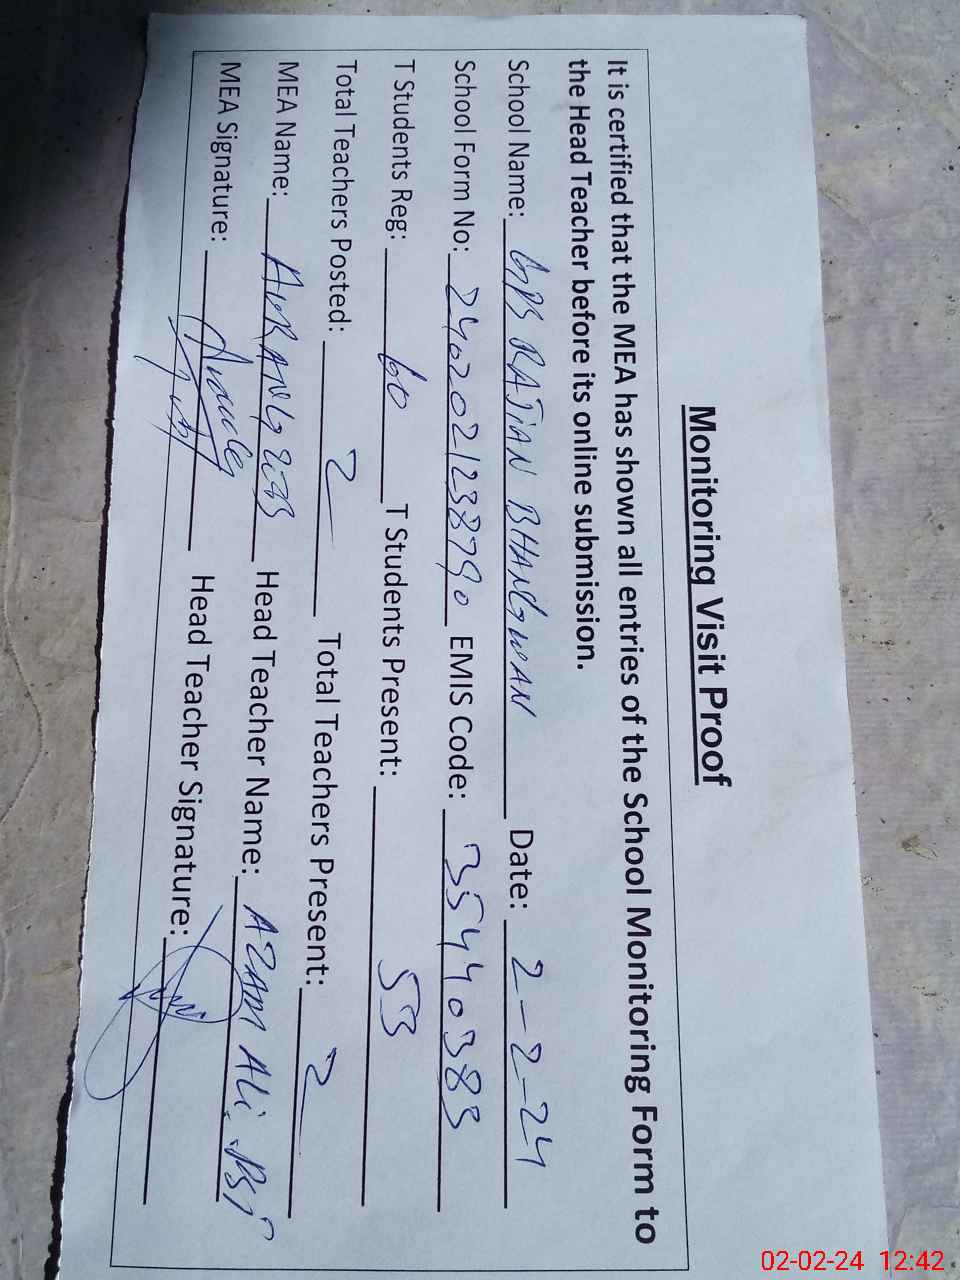 Monitoring Visit Proof
It is certified that the MEA has shown all entries of the School Monitoring Form to
the Head Teacher before its online submission.
School Name: GPS RAJIAN BHANGWAN Date: 2-2-24
School Form No: 2402021238790 EMIS Code: 35440383
T Students Reg: 60 T Students Present: 53
Total Teachers Posted: 2 Total Teachers Present: 2
MEA Name: AURANGZEB Head Teacher Name: AZAM ALI
MEA Signature: Head Teacher Signature:
02-02-24 12:42